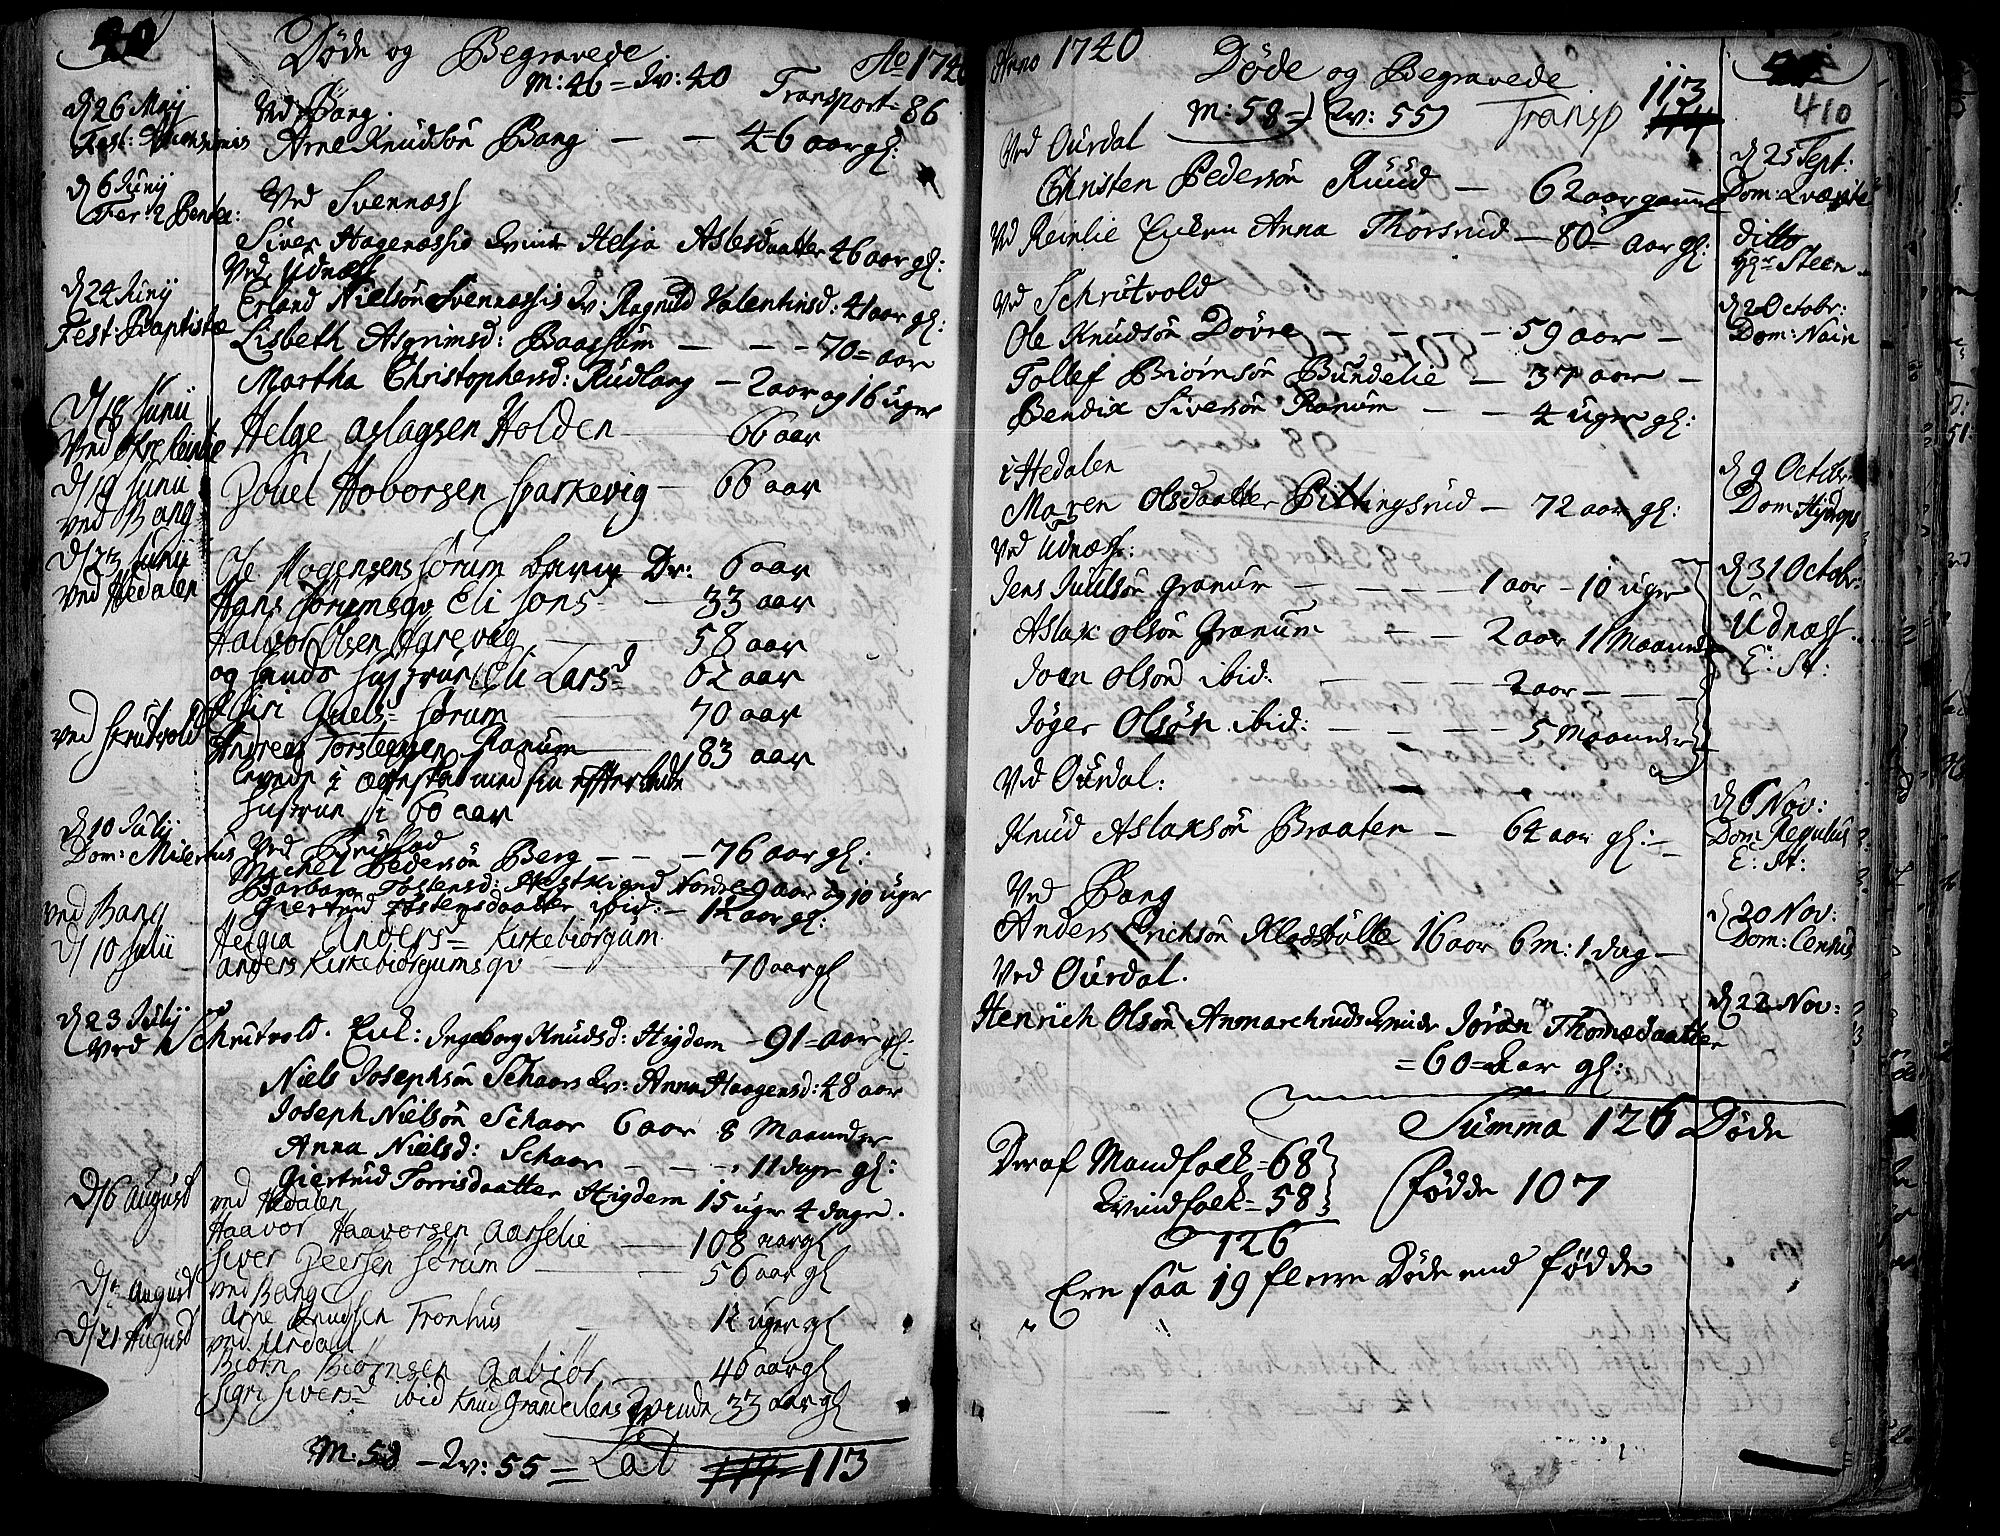 20
Døde og Begravede Ao 1740
M: 46 = Qv: 40 Transport = 86
d 26 Maij
Ved Bang.
Arne Knudsøn Bang — — 46 aar gl:
d 6 Junij
Fer: 2 Pentec:
Ved Svennæss
Siver Hagenæssis Qvinde Helja Aslesdaatter 46 aar gl:
d 24 Junij
Fest: Baptistæ
Ved Udnæss
Erland Nielsøn Svennæssis Qv: Ragnild Valentinsd: 41 aar gl:
Lisbeth Asgrimsd: Baassum — — — 70 = aar
Martha Christophersd: Rudlang — 2 aar og 16 uger
D/18 Junii
Helge Aslagsen Holden 66 aar
D/19 Junii
ved Bang
Jouel Hoborsen Sparkevig — 66 aar
D/23 Junii
ved Hedalen
Ole Mogensens Sørum barn Dr: 6 aar
Hans Sørums qv Eli Jons= — 33 aar
Halvor Olsen Harevig — 58 aar
og hands hustrue Eli Larsd 62 aar
Siri Guels= Sørum 70 aar
ved Skrutvold
Andreas Torsteensen Ranum 83 aar
levede i ægteskab med sin efterladte
hustrue i 60 aar
d 10 Julij
Dom: Misertus
Ved Bruflad
Michel Pedersøn Berg — — — 76 aar gl:
Barbara Tostensd: Hestkiend Nordre 9 aar og 10 uger
Giertrud Tostensdaatter ibid: — 14 aar gl:
ved Bang
D/10 Julii
Helgia Anders= Kirkebiorgum
Anders Kirkebiorgums qv — 70 aar gl
d 23 Julij
Ved Schrutvold. Enk: Ingeborg Knudsd: Higdem — 91 = aar gl:
Niels Josephsøn Schaars Qv: Anna Haagensd: 48 aar
Joseph Nielsøn Schaar 6 aar 8 Maaneder
Anna Nielsd: Schaar — — — 11 dage gl:
Giertrud Torrisdaatter Higdem 15 uger 4 dage.
D/6 August
ved Hedalen
Haavor Haavorsen Aarselie — 108 aar gl
Siver Peersen Sørum — 56 aar gl
D/7 August
ved Bang
Arne Knudsen Fronhus — 12 uger gl
D/21 August
ved Urdal
Biørn Biørnsen Aabiør — 46 aar gl
Sigri Sivers= ibid Knud Grandelens Qvinde 33 aar gl
M: 58 — Qv: 55 = Lat 114 113
Anno 1740
Døde og Begravede
M: 58 = Qv: 55 Transp 113
114
410
Ved Ourdal
Christen Pedersøn Ruud — 62 aar gamel
d 25 Sept:
Ved Reinlie Enken Anna Thorsrud — 80 = aar gl:
ditto
Hr Steen
Ved Schrutvold
d 2 Octobr:
Dom: Nain
Ole Knudsøn Dovre — — — 59 aar —
Tollef Biørnsøn Bundelie — 37 aar —
Bendix Siversøn Ranum — — 4 uger gl:
i Hedalen
d 9 Octobr
Dom: Hydrops
Maren Olsdaatter Pittingsrud — 72 aar gl:
Ved Udnæss:
d 31 Octobr:
Udnæss
E: St:
Jens Juulsøn Granum — — — 1 aar — 10 uger
Aslak Olsøn Granum — — 2 aar 11 Maaneder
Joen Olsøn ibid: — — — 2 aar — —
Jøger Olsøn ibid: — — — 5 Maaneder
Ved Ourdal:
d 6 Nov:
Dom Regulus
E: St:
Knud Aslaksøn Braaten — 64 aar gl: —
Ved Bang
d 20 Nov:
Dom: Census
Anders Erichsøn Kladstølle 16 aar 6 m: 1 dag —
Ved Ourdal.
d 22 Nov:
Henrich Olsøn Anmarchruds Qvinde Jøran Thomasdaatter
= 60 = aar gl:
Summa 126 Døde
Deraf Mandfolk = 68
Qvindfolk = 58
126
Fødde 107
Ere saa 19 fleere Døde end fødde